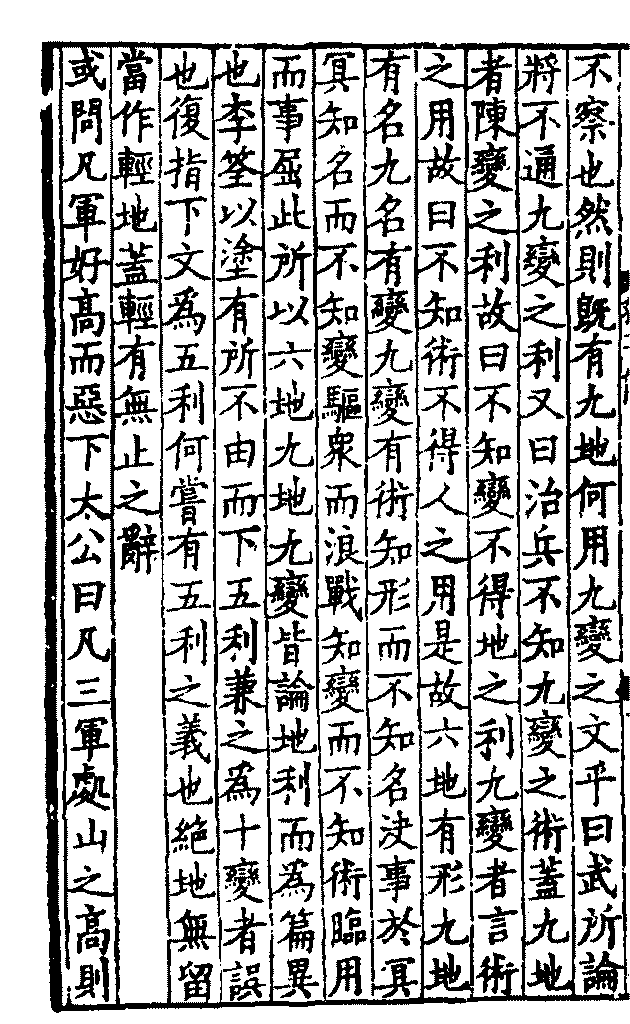 不察也然則既有九地何用九變之文乎曰武所論
將不通九變之利又曰治兵不知九變之術蓋九地
者陳變之利故曰不知變不得地之利九變者言術
之用故曰不知術不得人之用是故六地有形九地
有名九名有變九變有術知形而不知名決事於冥
冥知名而不知變驅衆而浪戰知變而不知術臨用
而事屈此所以六地九地九變皆論地利而為篇異
也李筌以塗有所不由而下五利兼之為十變者誤
也復指下文為五利何嘗有五利之義也絕地無留
當作輕地蓋輕有無止之辭
或問凡軍好高而惡下太公曰凡三軍處山之高則